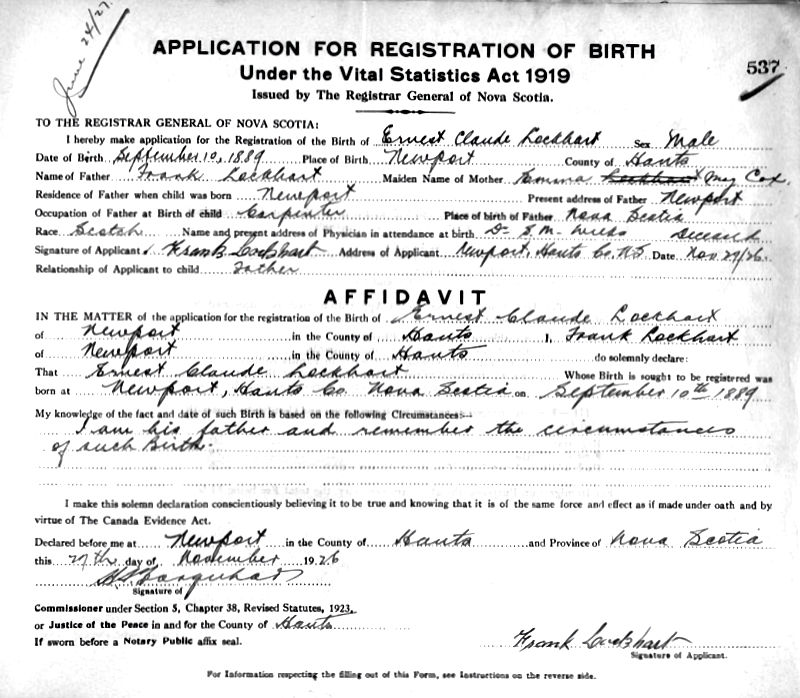 June 24/27.
APPLICATION FOR REGISTRATION OF BIRTH
537
Under the Vital Statistics Act 1919
Issued by The Registrar General of Nova Scotia.
TO THE REGISTRAR GENERAL OF NOVA SCOTIA:
I hereby make application for the Registration of the Birth of Ernest Claude Lockhart Sex Male
Date of Birth September 10, 1889 Place of Birth Newport County of Hants
Name of Father Frank Lockhart Maiden Name of Mother Emma Lockhart Cox.
Residence of Father when child was born Newport Present address of Father Newport
Occupation of Father at Birth of child Carpinter Place of birth of Father Nova Scotia
Race Scotch Name and present address of Physician in attendance at birth Dr. S. M. Deceased
Signature of Applicant Frank Lockhart Address of Applicant Newport, Hants Co. N.S Date Nov 27/26.
Relationship of Applicant to child Father
AFFIDAVIT
IN THE MATTER of the application for the registration of the Birth of Ernest Claude Lockhart
of Newport in the County of Hants I, Frank Lockhart
of Newport in the County of Hants do solemnly declare:
That Ernest Claude Lockhart Whose Birth is sought to be registered was
born at Newport, Hants Co Nova Scotia on September 10th 1889
My knowledge of the fact and date of such Birth is based on the following Circumstances:—
I am his father and remember the circumstances
of such Birth.
I make this solemn declaration conscientiously believing it to be true and knowing that it is of the same force and effect as if made under oath and by
virtue of The Canada Evidence Act.
Declared before me at Newport in the County of Hants and Province of Nova Scotia
this 27th day of November 1926
Farquhar
Signature of
Commissioner under Section 5, Chapter 38, Revised Statutes, 1923,
or Justice of the Peace in and for the County of Hants
If sworn before a Notary Public affix seal.
Frank Lockhart
Signature of Applicant.
For Information respecting the filling out of this Form, see Instructions on the reverse side.